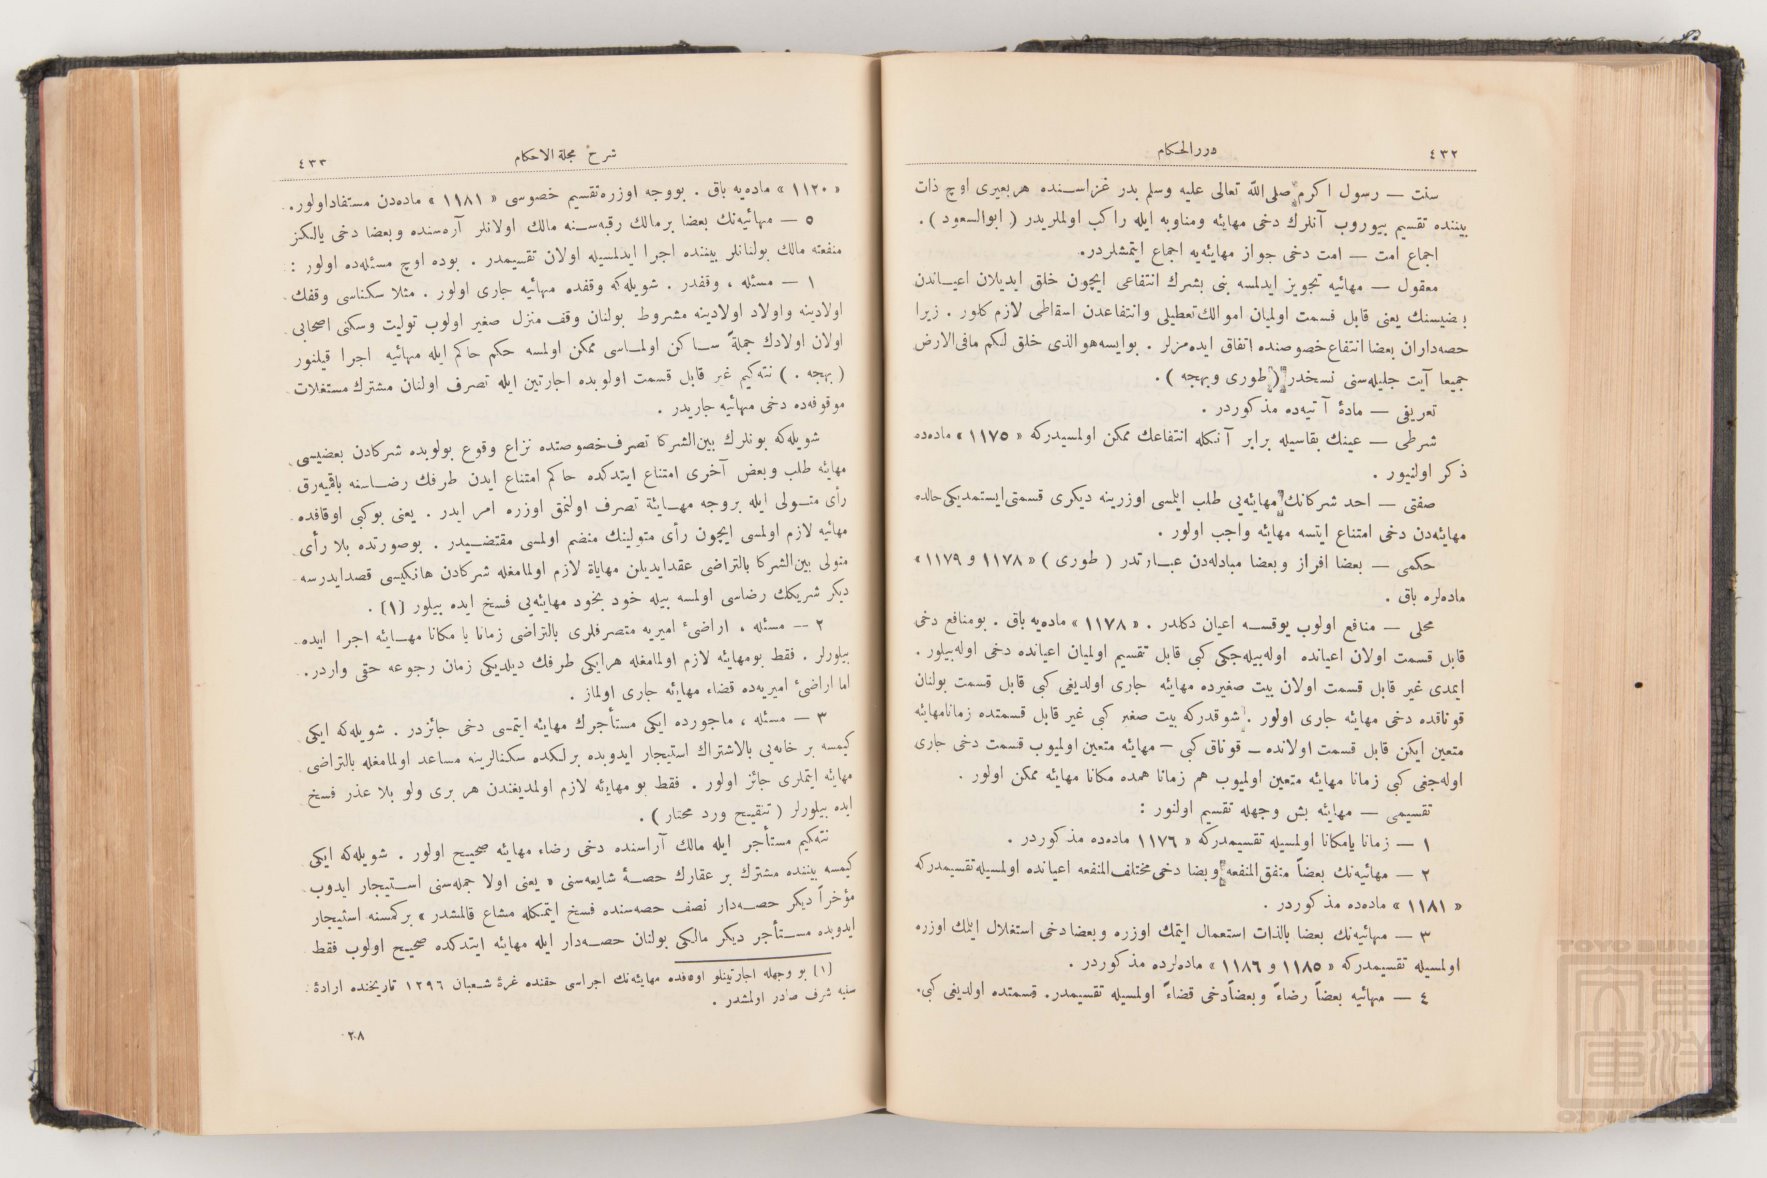 ٤٣٢
دررالحكام
سنت — رسول اكرم صلى الله تعالى عليه وسلم بدر غزاسنده هربعيرى اوچ ذات
بيننده تقسيم بيوروب آنلرك دخى مهايئه ومناوبه ايله راكب اولملريدر ( ابوالسعود ) .
اجماع امت — امت دخى جواز مهايئه‌يه اجماع ايتمشلردر.
معقول — مهائيه تجويز ايدلمسه بنى بشرك انتفاعى ايچون خلق ايديلان اعياندن
بعضيسنك يعنى قابل قسمت اولميان اموالك تعطيلى وانتفاعدن اسقاطى لازم كلور . زيرا
حصه‌داران بعضا انتفاع خصوصنده اتفاق ايده‌مزلر . بوايسه هوالذى خلق لكم مافى الارض
جميعا آيت جليله‌سنى نسخدر ( طورى وبهجه ) .
تعريفى — مادۀ آتيه‌ده مذكوردر .
شرطى — عينك بقاسيله برابر آنكله انتفاعك ممكن اولمسيدركه « ١١٧٥ » ماده‌ده
ذكر اولنيور .
صفتى — احد شركانك مهايئه‌يى طلب ايلمسى اوزرينه ديكرى قسمتى ايستمديكى حالده
مهايئه‌دن دخى امتناع ايتسه مهايئه واجب اولور .
حكمى — بعضا افراز وبعضا مبادله‌دن عبارتدر ( طورى ) « ١١٧٨ و ١١٧٩ »
ماده‌لره باق .
محلى — منافع اولوب يوقسه اعيان دكلدر . « ١١٧٨ » ماده‌يه باق . بومنافع دخى
قابل قسمت اولان اعيانده اوله‌بيله‌جكى كبى قابل تقسيم اولميان اعيانده دخى اوله‌بيلور .
ايمدى غير قابل قسمت اولان بيت صغيرده مهايئه جارى اولديغى كبى قابل قسمت بولنان
قوناقده دخى مهايئه جارى اولور . شوقدركه بيت صغير كبى غير قابل قسمتده زمانا مهايئه
متعين ايكن قابل قسمت اولانده — قوناق كبى — مهايئه متعين اولميوب قسمت دخى جارى
اوله‌جغى كبى زمانا مهايئه متعين اولميوب هم زمانا همده مكانا مهايئه ممكن اولور .
تقسيمى — مهايئه بش وجهله تقسيم اولنور :
١ — زمانا يامكانا اولمسيله تقسيمدركه « ١١٧٦ ماده‌ده مذكوردر .
٢ — مهائيه‌نك بعضاً متفق المنفعه وبضا دخى مختلف المنفعه اعيانده اولمسيله تقسيمدركه
« ١١٨١ » ماده‌ده مذكوردر .
٣ — مهائيه‌نك بعضا بالذات استعمال ايتمك اوزره وبعضا دخى استغلال ايلمك اوزره
اولمسيله تقسيمدركه « ١١٨٥ و ١١٨٦ » ماده‌لرده مذكوردر .
٤ — مهائيه بعضاً رضاءً وبعضاً دخى قضاءً اولمسيله تقسيمدر. قسمتده اولديغى كبى.
شرح مجلة الاحكام
٤٣٣
« ١١٢٠ » ماده‌يه باق . بووجه اوزره تقسيم خصوصى « ١١٨١ » ماده‌دن مستفاد اولور.
٥ — مهائيه‌نك بعضا برمالك رقبه‌سنه مالك اولانلر آره‌سنده وبعضا دخى يالكز
منفعته مالك بولنانلر بيننده اجرا ايدلمسيله اولان تقسيمدر . بوده اوچ مسئله‌ده اولور :
١ — مسئله ، وقفدر . شويله‌كه وقفده مهائيه جارى اولور . مثلا سكناسى وقفك
اولادينه واولاد اولادينه مشروط بولنان وقف منزل صغير اولوب توليت وسكنى اصحابى
اولان اولادك جملةً ساكن اولماسى ممكن اولمسه حكم حاكم ايله مهائيه اجرا قيلنور
( بهجه . ) نته‌كيم غير قابل قسمت اولوبده اجارتين ايله تصرف اولنان مشترك مستغلات
موقوفه‌ده دخى مهائيه جاريدر .
شويله‌كه بونلرك بين الشركا تصرف خصوصنده نزاع وقوع بولوبده شركادن بعضيسى
مهايئه طلب وبعض آخرى امتناع ايتدكده حاكم امتناع ايدن طرفك رضاسنه باقميه‌رق
رأى متولى ايله بروجه مهايئة تصرف اولنمق اوزره امر ايدر . يعنى بوكبى اوقافده
مهائيه لازم اولمسى ايچون رأى متولينك منضم اولمسى مقتضيدر . بوصورتده بلا رأى
متولى بين الشركا بالتراضى عقدايديلن مهاياة لازم اولمامغله شركادن هانكيسى قصدايدرسه
ديكر شريكك رضاسى اولمسه بيله خود بخود مهايئه‌يى فسخ ايده بيلور (١) .
٢ — مسئله ، اراضئ اميريه متصرفلرى بالتراضى زمانا يا مكانا مهايئه اجرا ايده
بيلورلر . فقط بومهايئه لازم اولمامغله هرايكى طرفك ديلديكى زمان رجوعه حقى واردر.
اما اراضئ اميريه‌ده قضاء مهايئه جارى اولماز .
٣ — مسئله ، ماجورده ايكى مستأجرك مهايئه ايتمسى دخى جائزدر . شويله‌كه ايكى
كيمسه بر خانه‌يى بالاشتراك استيجار ايدوبده برلكده سكنالرينه مساعد اولمامغله بالتراضى
مهايئه ايتملرى جائز اولور . فقط بو مهايئه لازم اولمديغندن هر برى ولو بلا عذر فسخ
ايده بيلورلر ( تنقيح ورد محتار ) .
نته‌كيم مستأجر ايله مالك آراسنده دخى رضاء مهايئه صحيح اولور . شويله‌كه ايكى
كيمسه بيننده مشترك بر عقارك حصۀ شايعه‌سنى « يعنى اولا جمله‌سنى استيجار ايدوب
مؤخراً ديكر حصه‌دار نصف حصه‌سنده فسخ ايتمكله مشاع قالمشدر » بركمسنه استيجار
ايدوبده مستأجر ديكر مالكى بولنان حصه‌دار ايله مهايئه ايتدكده صحيح اولوب فقط
(١) بو وجهله اجارتينلو اوقافده مهايئه‌نك اجراسى حقنده غرۀ شعبان ١٢٩٦ تاريخنده ارادۀ
سنيه شرف صادر اولمشدر .
٢٨
TOYO BUNKO